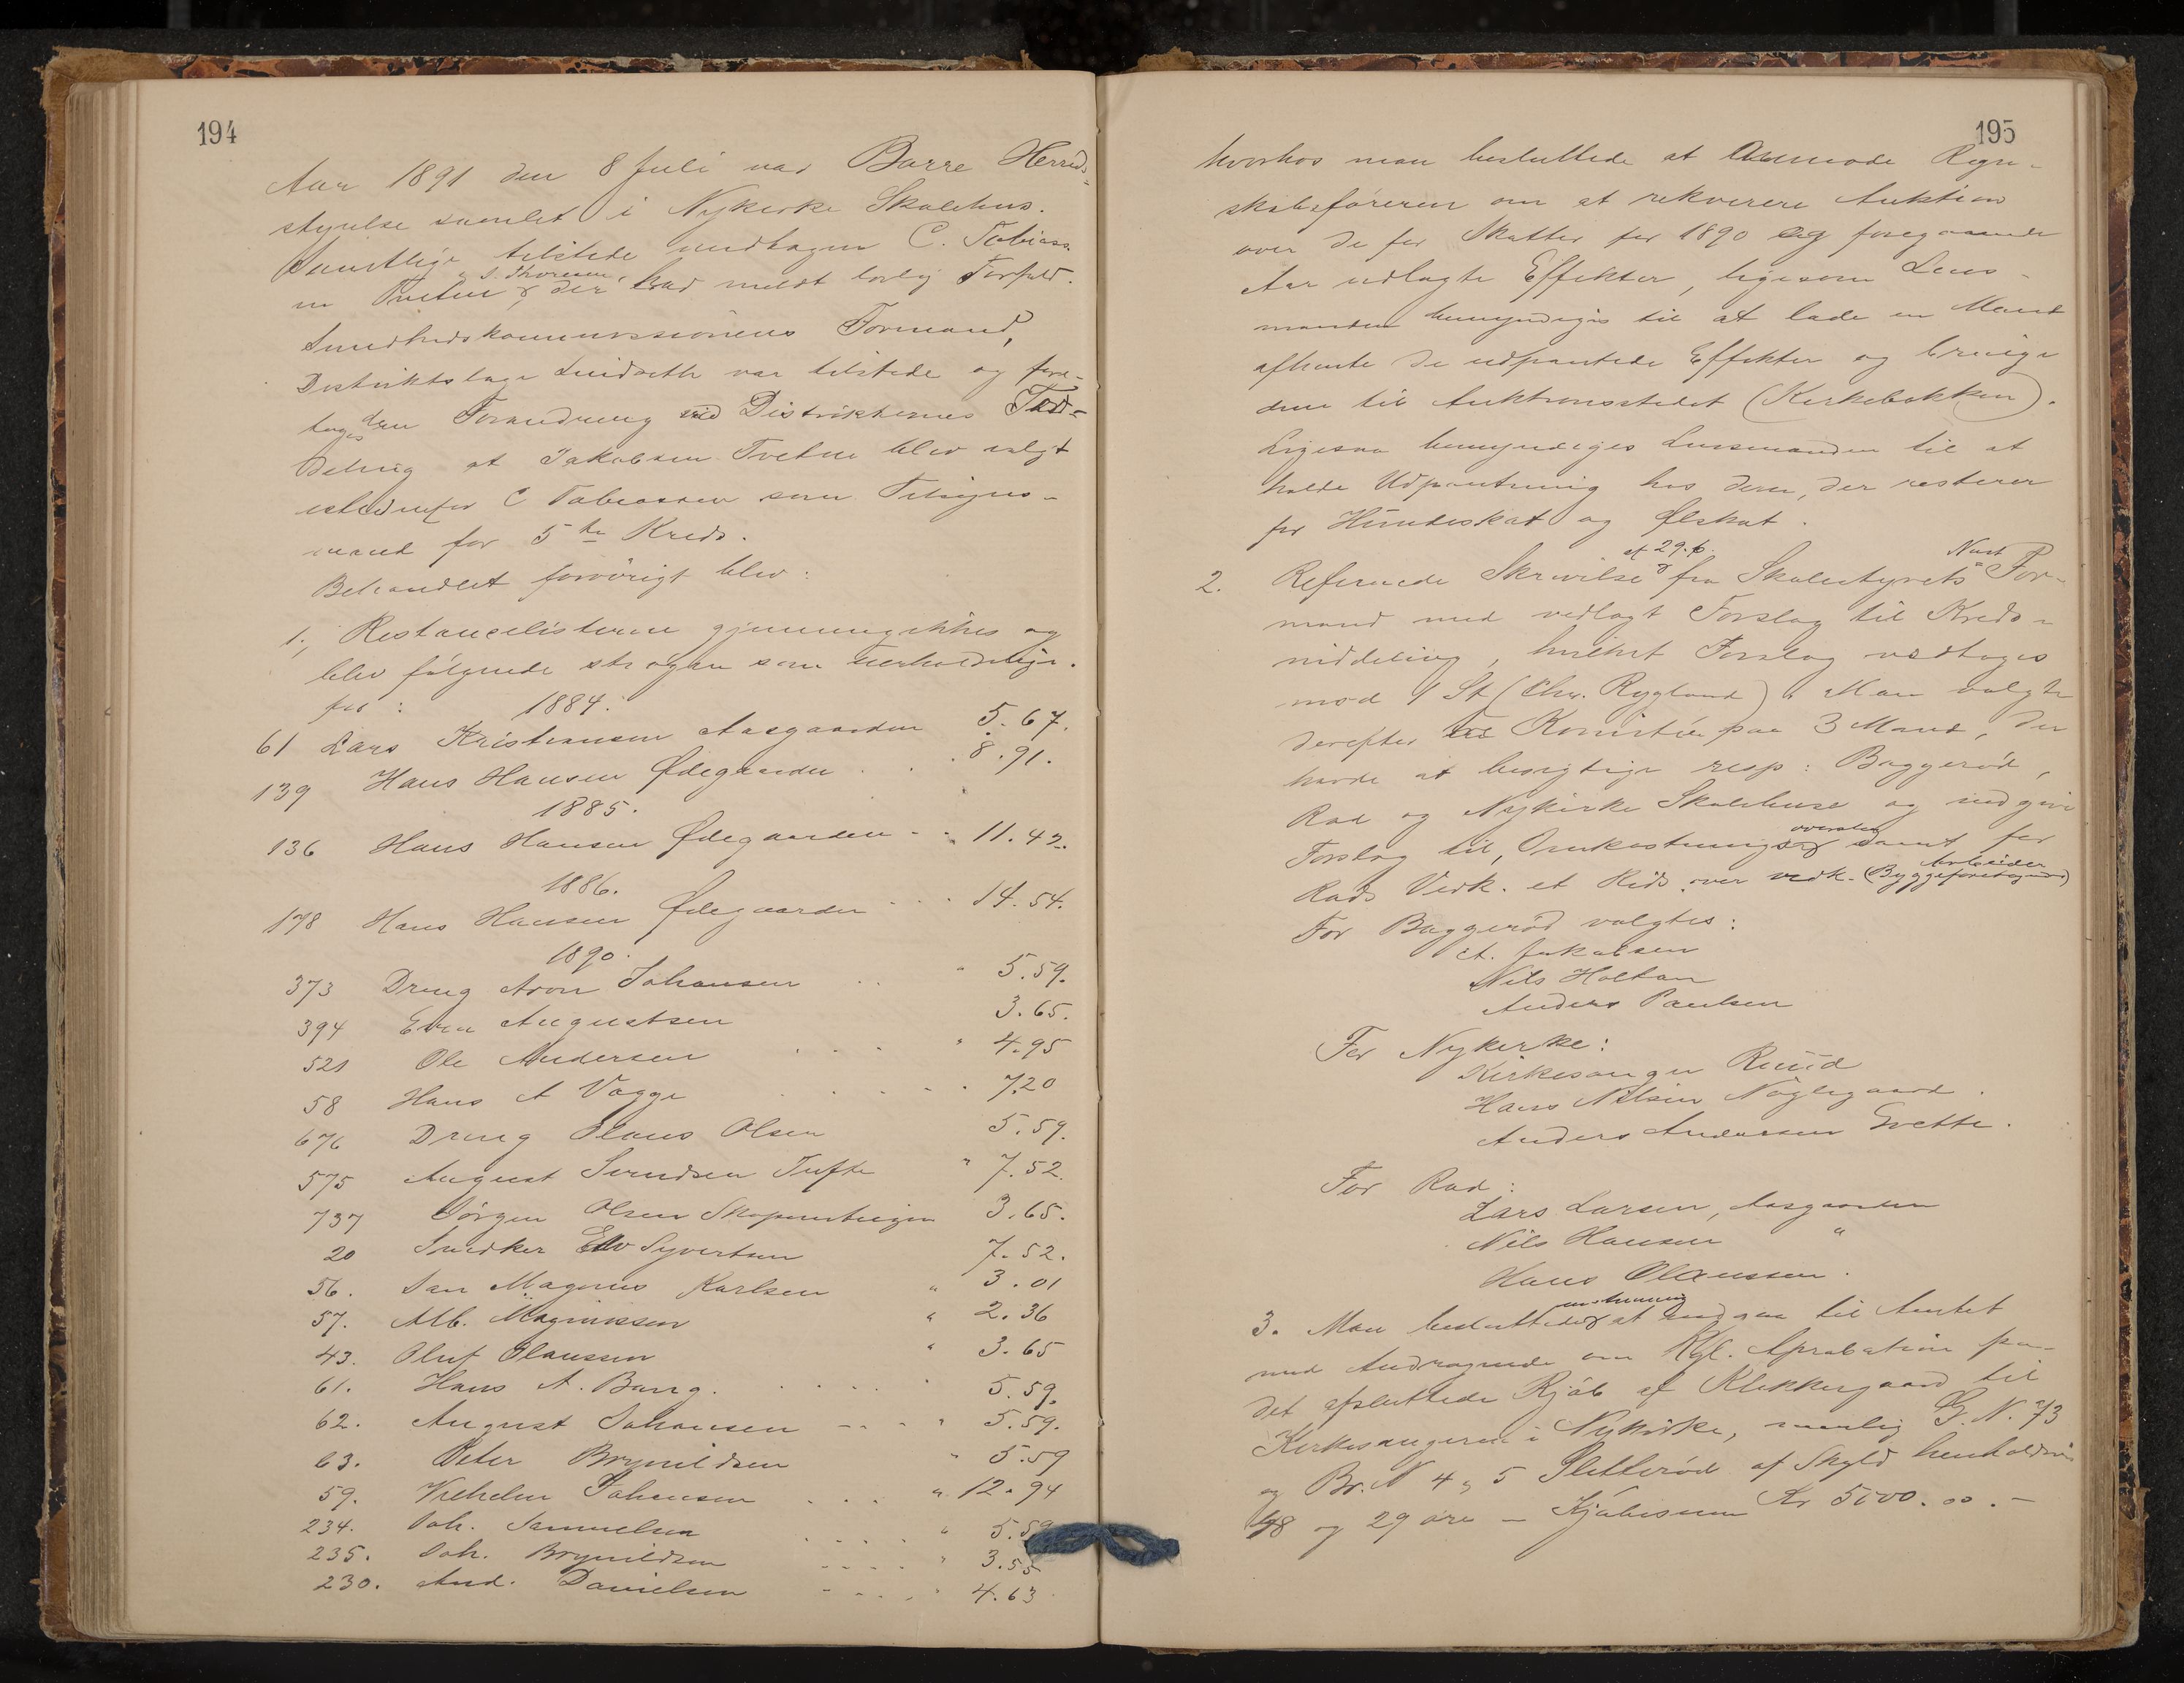 194
Aar 1891 den 8 Juli var Borre Herreds-
styrelse samlet i Nykirke Skolehus.
Samtlige tilstede undtagen C. Tobias-
sen Tveten & S. Thoresen, der havd meldt lovlig Forfald.
Sundhedskommissionens Formand,
Distriktslæge Lindseth var tilstede og fore-
toges den Forandring ved Distrikternes Ind-
deling at Jakobsen Tveten blev valgt
istedenfor C Tobiassen som Tilsyns-
mand for 5te Kreds.
Behandlet forøvrigt blev:
1., Restancelisterne gjennemgikkes og
blev følgende strøgne som uerholdelige.
for : 1884.
61 Lars Kristiansen Aasgaarden 5.67.
139 Hans Hansen Ødegaarden . . . 8.91.
1885.
136 Hans Hansen Ødegaarden - - . 11.42.
1886.
178 Hans Hansen Ødegaarden - - . 14.54.
1890.
373 Dreng Aron Johansen . . " 5.59.
394 Even Augustsen 3.65.
521 Ole Andersen . . . " 4.95
58 Hans A Vogge . . . . 7.20
676 Dreng Olaus Olsen 5.59.
575 August Svendsen Tufte " 7.52.
737 Jørgen Olsen 3.65.
20 Snedker Syvertsen 7.52.
56. Jan Magnus Karlsen " 3.01
57. Alb. Magnussen " 2.36
43. Oluf Olaussen " 3.65
61. Hans A. Bang. . . . . " 5.59.
62. August Johansen - - - " 5.59.
63. Peter Brynildsen " 5.59
59. Vilhelm Johansen . . . " 12.94
234. Joh. Samuelsen . . . . " 5.59
235. Joh. Brynildsen - - - - " 3.55
230. And. Danielsen - - - . " 4.63
195
hvorhos man besluttede at anmode Regn-
skabsføreren om at rekvirere Auktion
over de for Skatter for 1890 og foregaaende
Aar udlagte Effekter, ligesom Lens-
manden bemyndiges til at lade en Mand
afhente de udpantede Effekter og bringe
dem til Auktionsstedet (Kirkebakken).
Ligesaa bemyndiges Lensmanden til at
holde Udpantning hos dem, der resterer
for Hundeskat og Ølskat.
2. Refererede Skrivelse af 29. p. fra Skolestyrets For-
mand med vedlagt Forslag til Kreds-
inddeling, hvilket Forslag vedtoges
mod 1 St (Chr. Rygland). Man valgte
derefter Komitéer paa 3 Mand, der
havde at besigtige resp: Baggerød,
Rød og Nykirke Skolehuse og indgive
Forslag til, Omkostningsoverslag samt for
Røds Vedk. et Rids over vedk. Arbeider (Byggeforetagende)
For Baggerød valgtes:
A. Jakobsen
Nils Holtan
Anders Paulsen
For Nykirke:
Kirkesanger Ruud
Hans Nilsen Nøglegaard.
Anders Andersen Grette.
For Rød:
Lars Larsen, Aasgaarden
Nils Hansen "
Hans Olaussen.
3. Man besluttede enstemmig at indgaa til Amtet
med Andragende om Kgl. Aprobation paa
det afsluttede Kjøb af Klokkergaard til
Kirkesangeren i Nykirke, nemlig G. N. 73
og Br. N 4 & 5 Sletterød af Skyld henholdsvis
48 og 29 øre - Kjøbesum Kr 5000.00.-